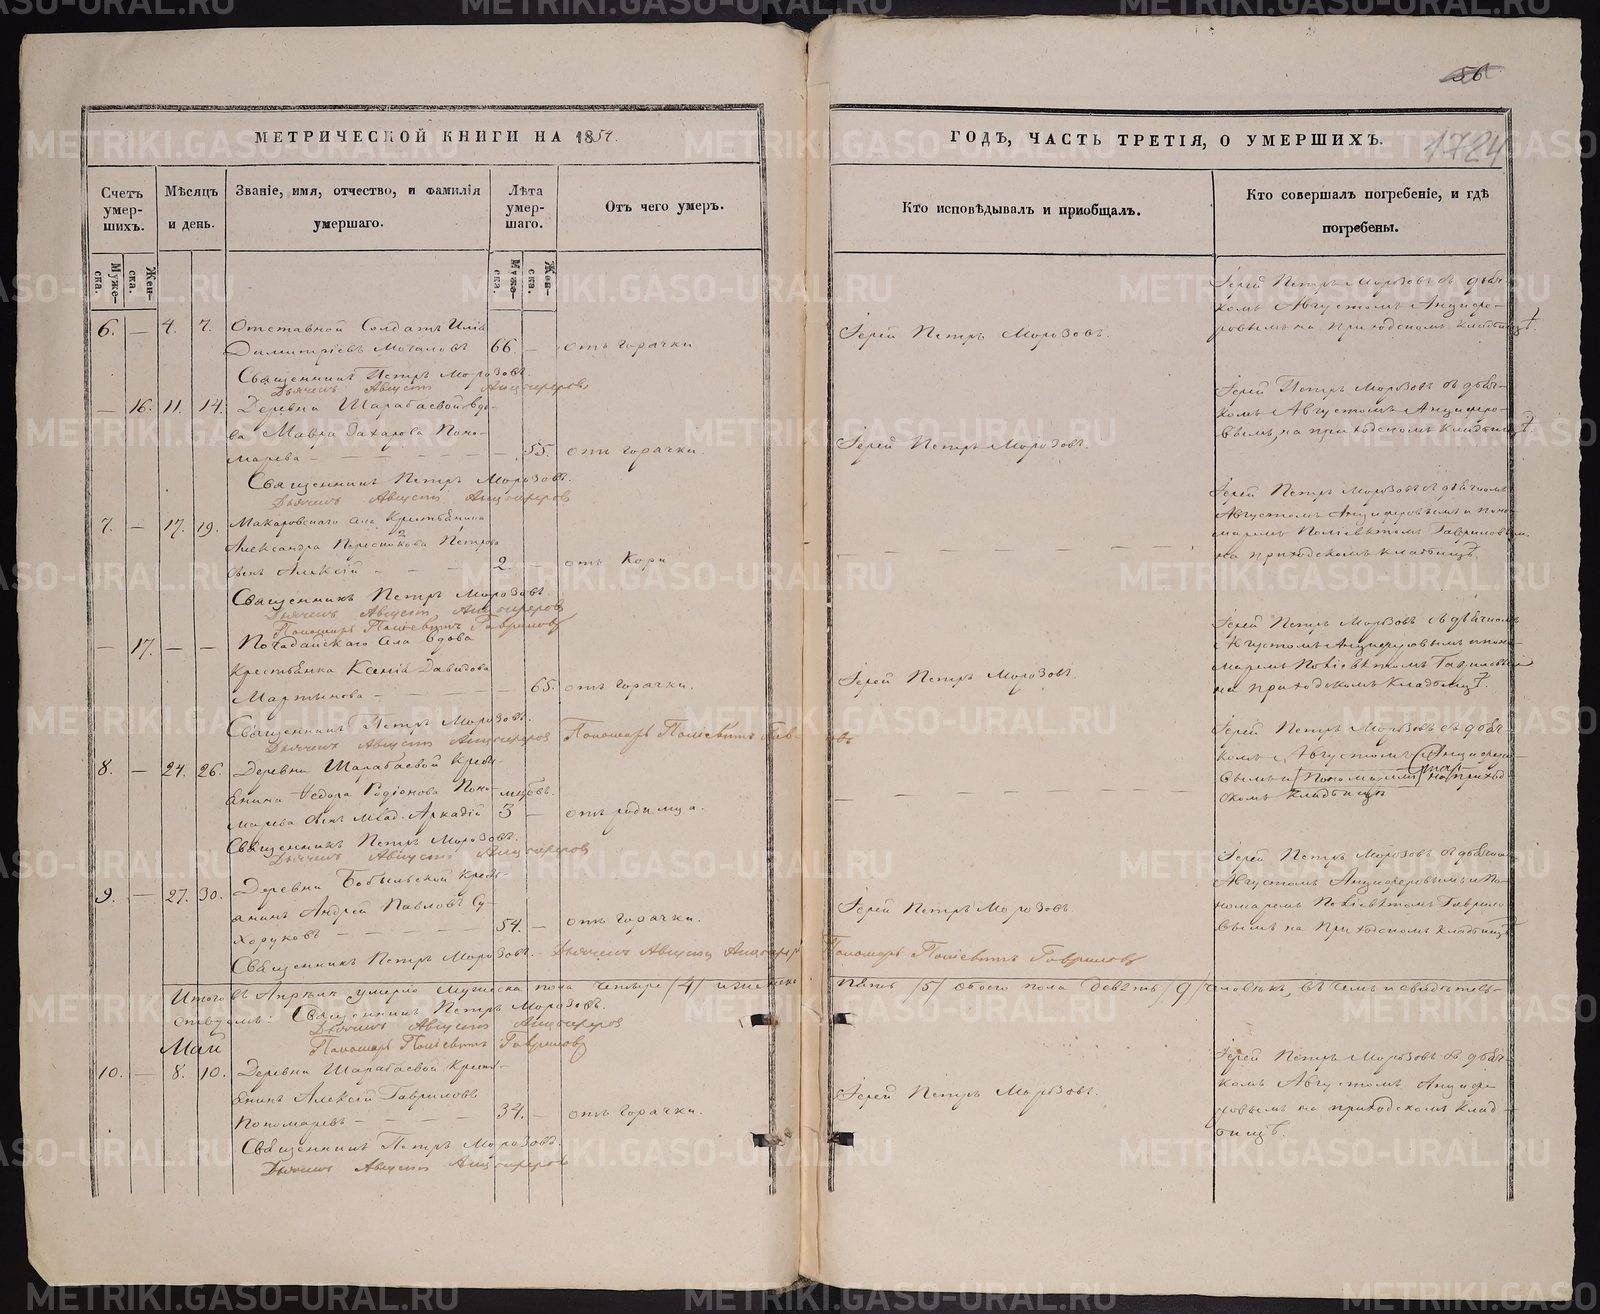 56
МЕТРИЧЕСКОЙ КНИГИ НА 1854.
ГОДЪ, ЧАСТЬ ТРЕТІЯ, О УМЕРШИХЪ.
1724
Счетъ умер-шихъ.
Мѣсяцъ и день.
Званіе, имя, отчество, и фамилія умершаго.
Лѣта умер-шаго.
Отъ чего умеръ.
Кто исповѣдывалъ и пріобщалъ.
Кто совершалъ погребеніе, и гдѣ погребены.
Муже-ска.
Жен-ска.
Муже-ска.
Жен-ска.
6. — 4. 7. Отставной Солдатъ Илія
Димитріевъ Мочаловъ 66. — отъ горячки
Іерей Петръ Морозовъ.
Іерей Петръ Морозовъ съ дьяч-
комъ Августомъ Анциферо-
вымъ на приходскомъ кладбищѣ.
Священникъ Петръ Морозовъ.
Дьячекъ Августъ Анцыферовъ
— 16. 11. 14. Деревни Шарабаевой вдо-
ва Мавра Захарова Поно-
марева — — 55. отъ горячки.
Іерей Петръ Морозовъ.
Іерей Петръ Морозовъ съ дьяч-
комъ Августомъ Анциферо-
вымъ, на приходскомъ кладбищѣ
Священникъ Петръ Морозовъ.
Дьячекъ Августъ Анцыферовъ
7. — 17. 19. Макаровскаго села Крестьянина
Александра Петрова
сынъ Алексій — 2. — отъ Кори
Іерей Петръ Морозовъ съ дьячкомъ
Августомъ Анциферовымъ и поно-
маремъ Гавриловымъ
на приходскомъ кладбищѣ.
Священникъ Петръ Морозовъ.
Дьячекъ Августъ Анцыферовъ
Пономарь Гавриловъ
— 17. — — села вдова
Крестьянка Ксенія Давидова
Мартынова — — 65. отъ горячки.
Іерей Петръ Морозовъ.
Іерей Петръ Морозовъ съ дьячкомъ
Августомъ Анциферовымъ и поно-
маремъ Гавриловымъ
на приходскомъ кладбищѣ.
Священникъ Петръ Морозовъ.
Дьячекъ Августъ Анцыферовъ Пономарь Гавриловъ
8. — 24. 26. Деревни Шарабаевой Кресть-
янина Ѳедора Родіонова Поно-
марева сынъ млад. Аркадій 3 — отъ родимца.
Іерей Петръ Морозовъ съ дьяч-
комъ Августомъ Анциферо-
вымъ и пономаремъ на приход-
скомъ кладбищѣ
Священникъ Петръ Морозовъ.
Дьячекъ Августъ Анцыферовъ
9. — 27. 30. Деревни Бобыльской Кресть-
янинъ Андрей Павловъ Су-
хоруковъ — 54. — отъ горячки.
Іерей Петръ Морозовъ
Іерей Петръ Морозовъ съ дьячкомъ
Августомъ Анциферовымъ и по-
номаремъ Гаврило-
вымъ на приходскомъ кладбищѣ
Священникъ Петръ Морозовъ. Дьячекъ Августъ Анцыферовъ Пономарь Гавриловъ
Итого въ Апрѣлѣ умерло мужеска пола четыре /4/ и женска пять /5/ обоего пола девять /9/ человѣкъ, въ чемъ и свидѣтель-
ствуемъ: Священникъ Петръ Морозовъ.
Дьячекъ Августъ Анцыферовъ
Пономарь Гавриловъ
Май
10. — 8. 10. Деревни Шарабаевой Кресть-
янинъ Алексій Гавриловъ
Пономаревъ — 34. — отъ горячки.
Іерей Петръ Морозовъ.
Іерей Петръ Морозовъ съ дьяч-
комъ Августомъ Анцифе-
ровымъ на приходскомъ клад-
бищѣ.
Священникъ Петръ Морозовъ.
Дьячекъ Августъ Анцыферовъ
METRIKI.GASO-URAL.RU